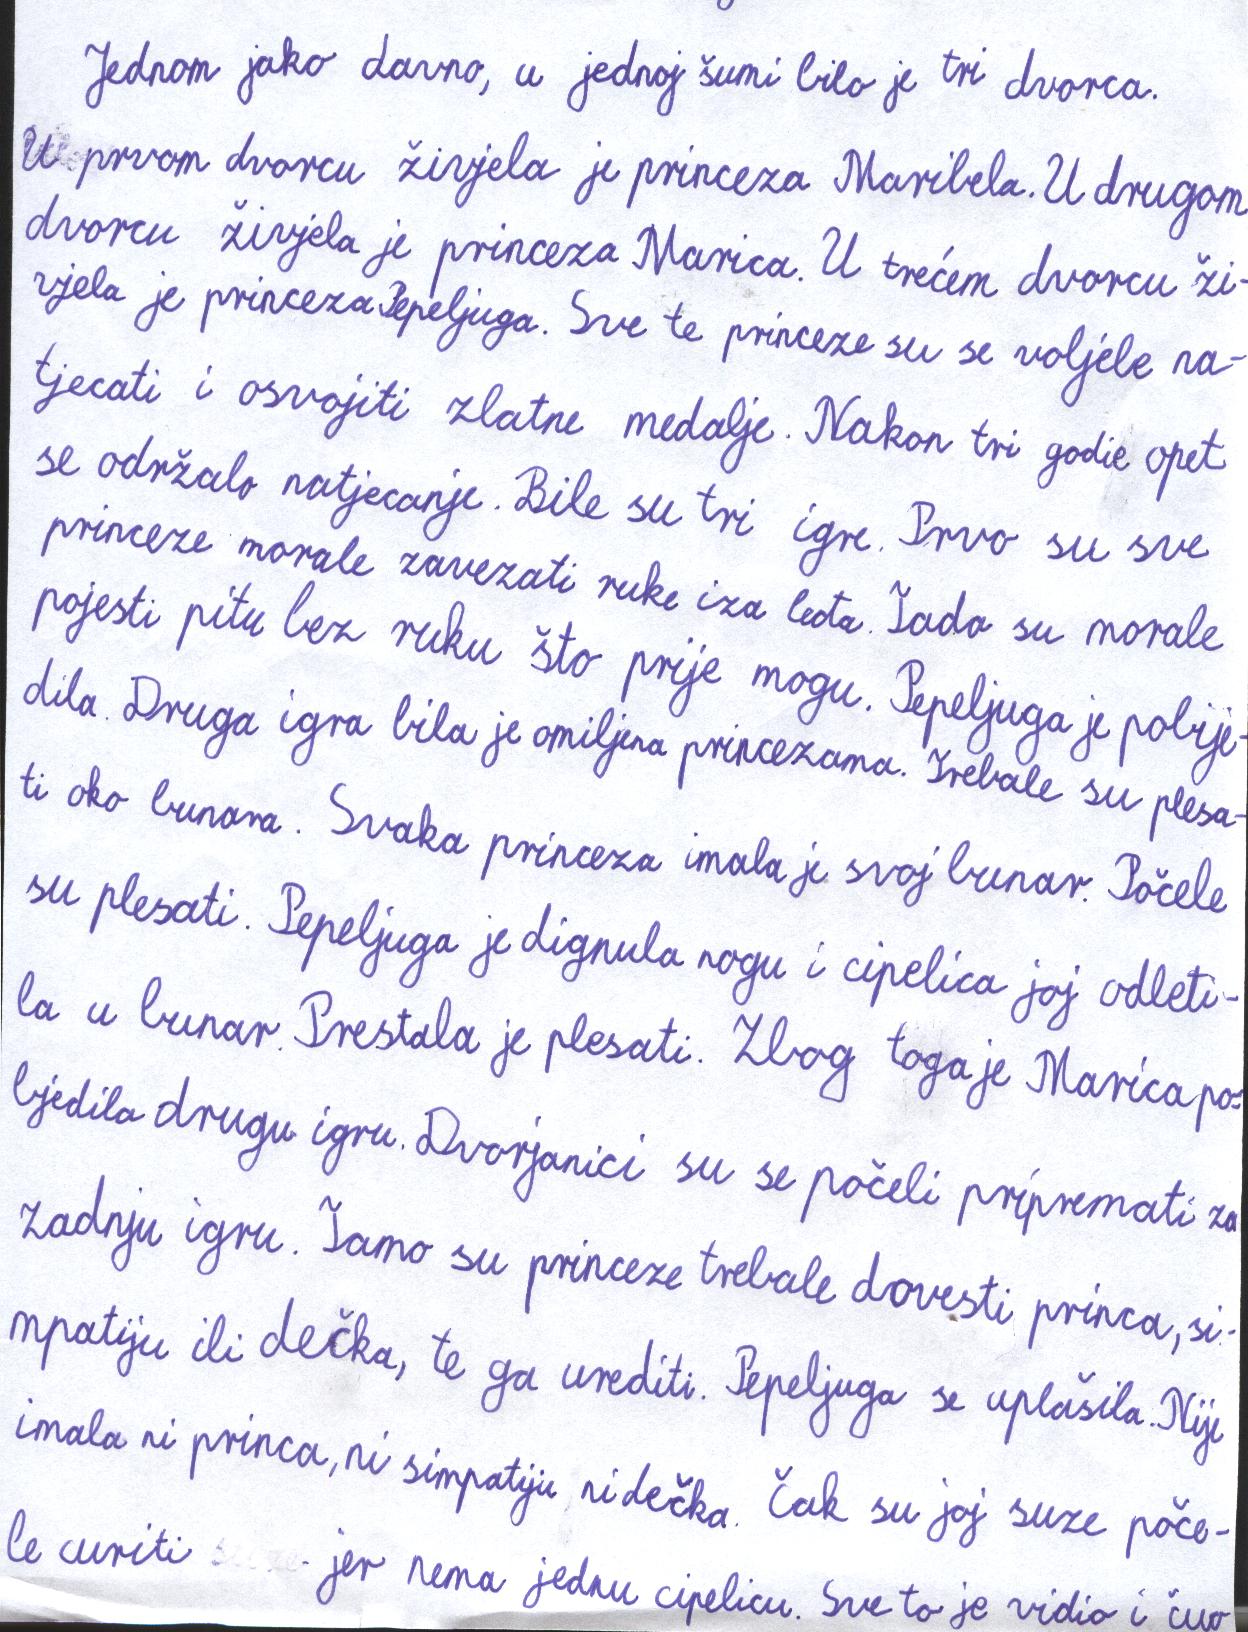 Jednom jako davno, u jednoj šumi bilo je tri dvorca.
U prvom dvorcu živjela je princeza Maribela. U drugom
dvorcu živjela je princeza Marica. U trećem dvorcu ži-
vjela je princeza Pepeljuga. Sve te princeze su se voljele na-
tjecati i osvojiti zlatne medalje. Nakon tri godie opet
se održalo natjecanje. Bile su tri igre. Prvo su sve
princeze morale zavezati ruke iza leđa. Tada su morale
pojesti pitu bez ruku što prije mogu. Pepeljuga je pobije-
dila. Druga igra bila je omiljena princezama. Trebale su plesa-
ti oko bunara. Svaka princeza imala je svoj bunar. Počele
su plesati. Pepeljuga je dignula nogu i cipelica joj odleti-
la u bunar. Prestala je plesati. Zbog toga je Marica po-
bjedila drugu igru. Dvorjanici su se počeli pripremati za
zadnju igru. Tamo su princeze trebale dovesti princa, si-
mpatiju ili dečka, te ga urediti. Pepeljuga se uplašila. Nije
imala ni princa, ni simpatiju ni dečka. Čak su joj suze poče-
le curiti jer nema jednu cipelicu. Sve to je vidio i čuo